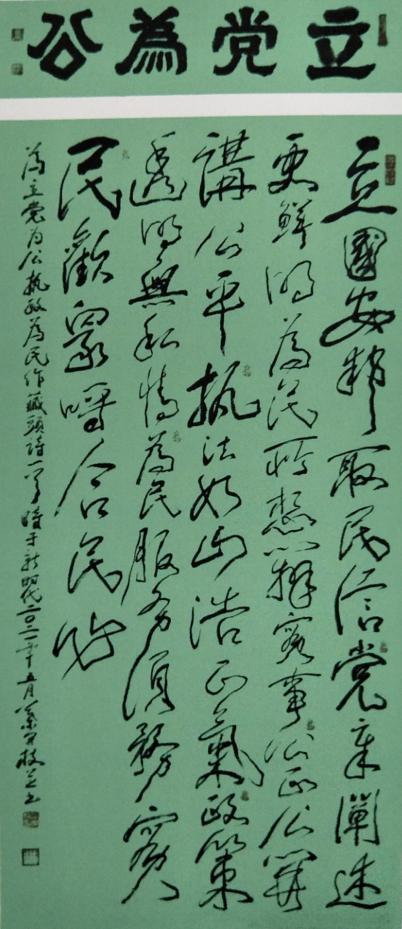 立党為公
立國安邦取民信党章闡述
更鮮明為民所想辦實事公正公開
講公平執法如山浩正氣政策
透明無私情為民服务須務實
民歡眾合民
為立党为公執政為民作藏頭詩一首時于新時代二〇二一年五月